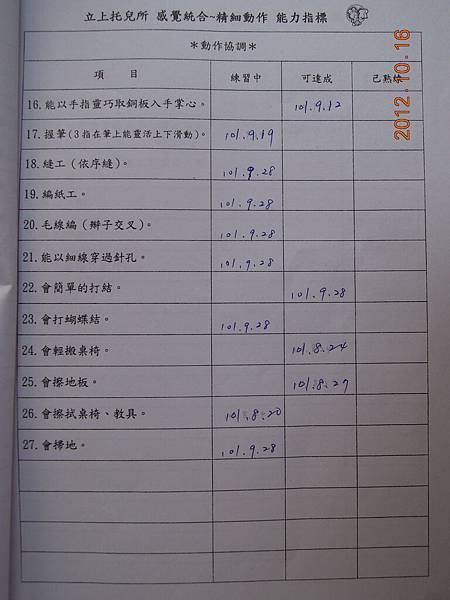 立上托兒所 感覺統合~精細動作 能力指標
＊動作協調＊
項 目 練習中 可達成 已熟練
16.能以手指靈巧取銅板入手掌心。 101.9.12
17.握筆(3指在筆上能靈活上下滑動)。 101.9.19
18.縫工(依序縫)。 101.9.28
19.編紙工。 101.9.28
20.毛線編(辮子交叉)。 101.9.28
21.能以細線穿過針孔。 101.9.28
22.會簡單的打結。 101.9.28
23.會打蝴蝶結。 101.9.28
24.會輕搬桌椅。 101.8.24
25.會擦地板。 101.8.27
26.會擦拭桌椅、教具。 101.8.20
27.會掃地。 101.9.28
2012.10.16